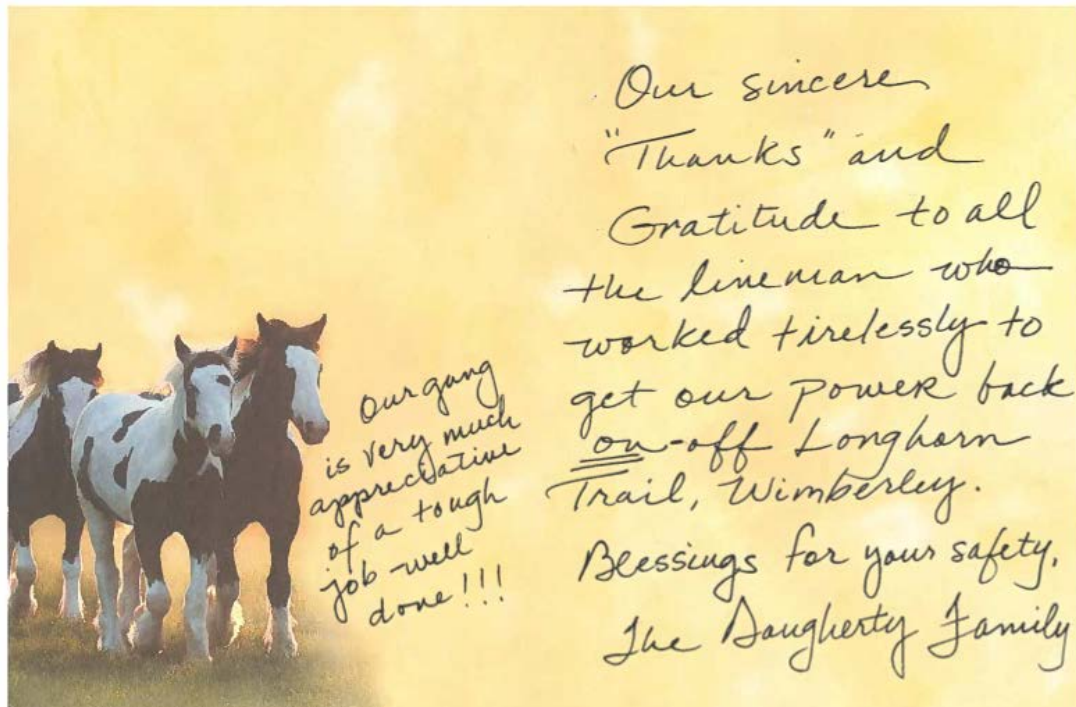 Our sincere
"Thanks" and
Gratitude to all
the lineman who
worked tirelessly to
get our power back
on-off Longhorn
Trail, Wimberley.
Blessings for your safety,
The Daugherty Family
Our gang
is very much
appreciative
of a tough
job-well
done!!!